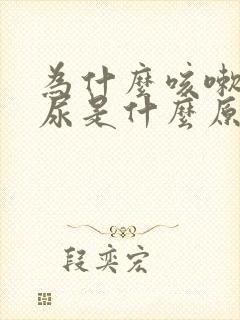 為什麼咳嗽
尿是什麼原
段奕宏